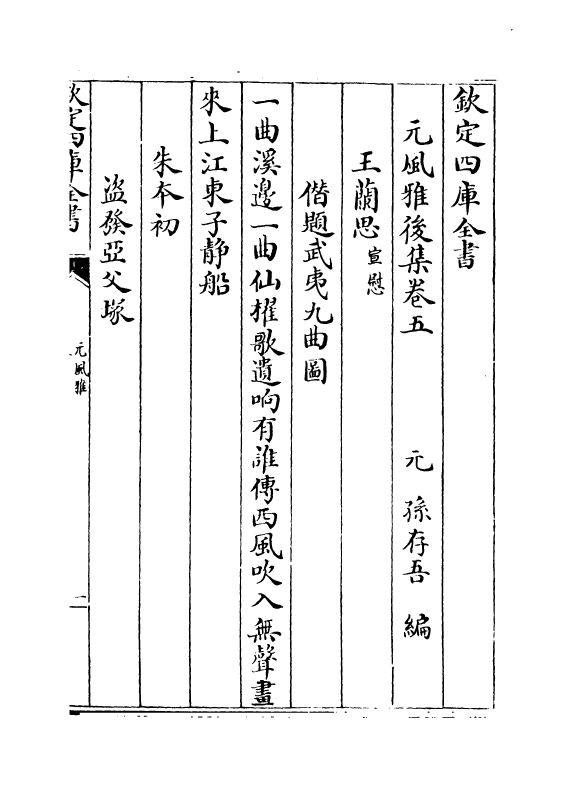 欽定四庫全書
元風雅後集卷五　元　孫存吾　編
王蘭思宣慰
偕題武夷九曲圖
一曲溪邊一曲仙櫂歌遺响有誰傳西風吹入無聲畫
來上江東子静船
朱夲初
盜發亞父塚
欽定四庫全書
元風雅